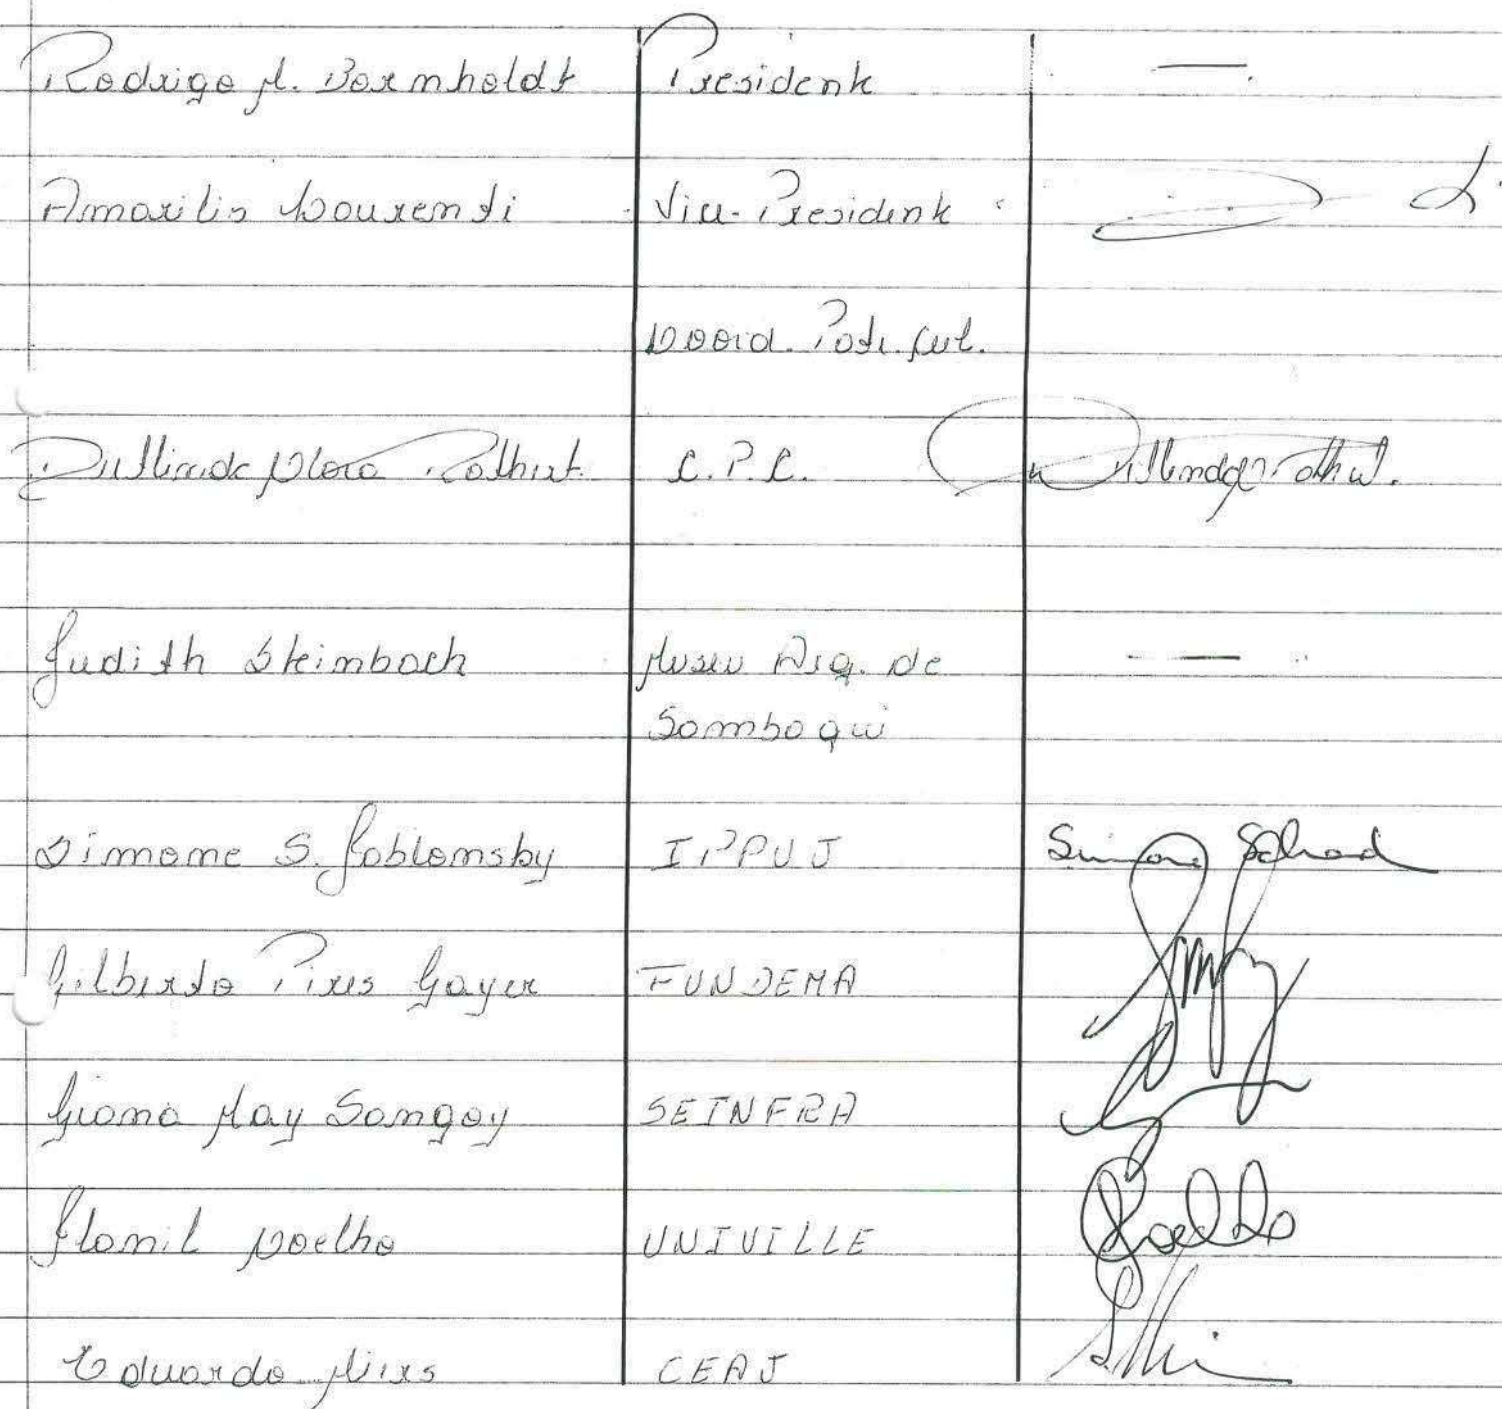 Rodrigo M. Bornholdt Presidente —
Amarilis Laurenti Vice-Presidente
Coord. Patr. Cul.
Dullinda Clara Rathert C.P.C.
Judith Steinbach Museu Arq. de —
Sambaqui
Simone S. Jablonsky IPPUJ Simone Schroed
Gilberto Pires Gayer FUNDEMA
Giana May Sangoy SEINFRA
Ilanil Coelho UNIVILLE
Eduardo Mires CEAJ